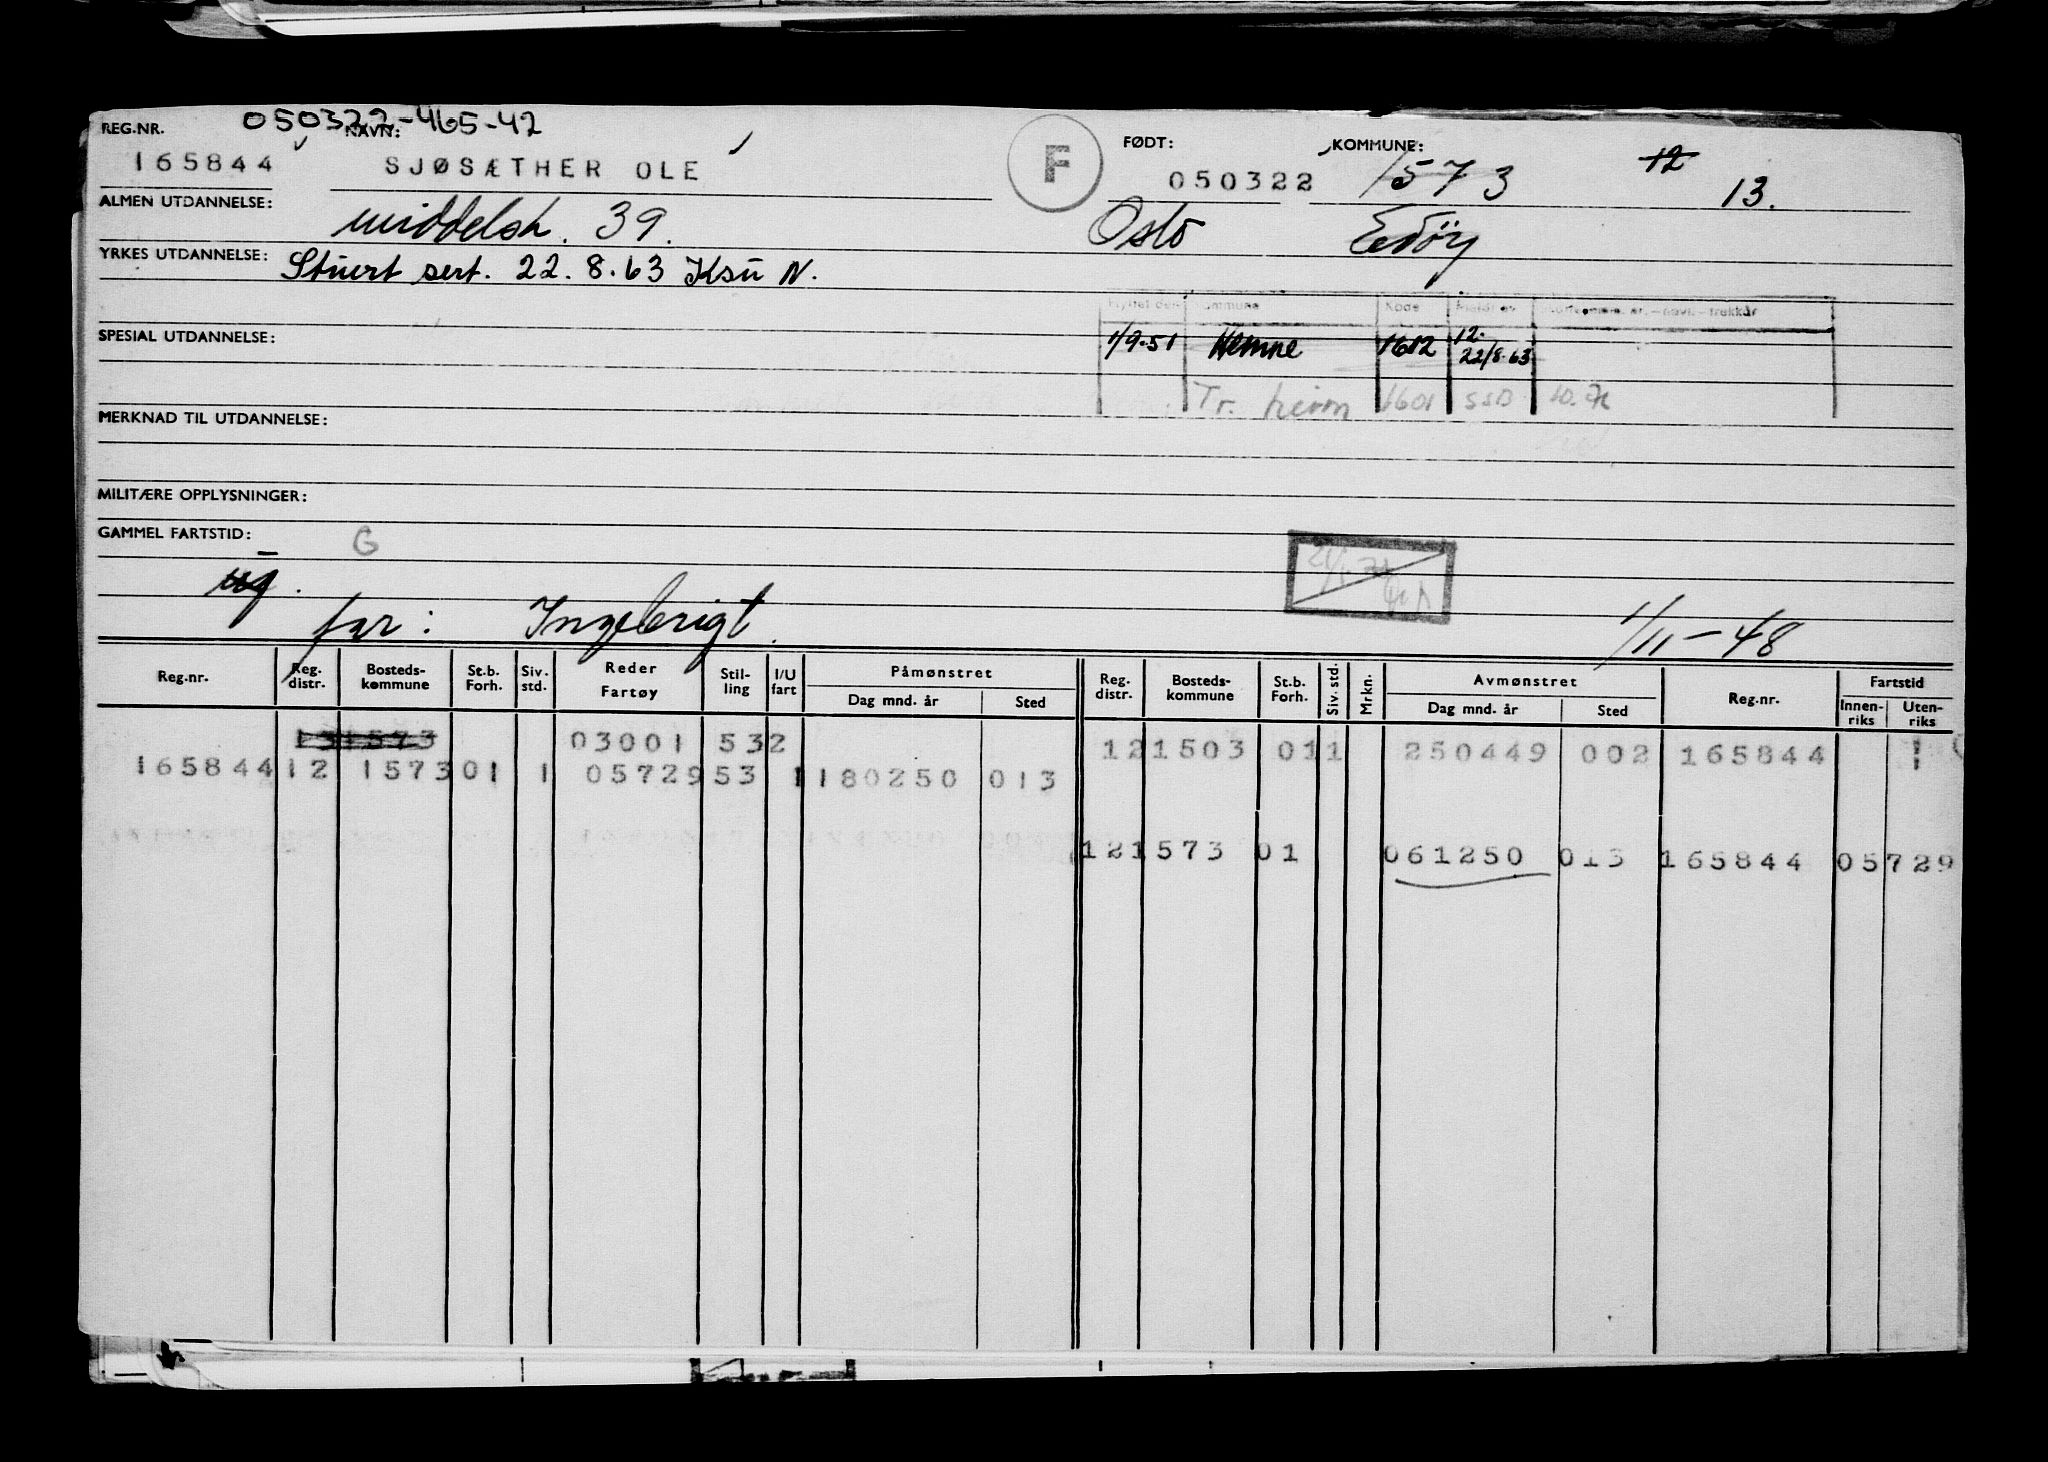 050322-465-42
REG.NR. NAVN: F FØDT: KOMMUNE:
165844 SJØSÆTHER OLE 050322 1573 12 13.
ALMEN UTDANNELSE: middelsk. 39. Oslo Edöy
YRKES UTDANNELSE: Stuert sert. 22.8.63 Ksu N.
Kode
SPESIAL UTDANNELSE: 1/9-51 Hemne 1612 12. 22/8.63
Tr. heim 1601 SSD
MERKNAD TIL UTDANNELSE:
MILITÆRE OPPLYSNINGER:
GAMMEL FARTSTID: – G
ug.
far: Ingebrigt. 1/11-48
Reg.nr. Reg. distr. Bosteds-kommune St.b. Forh. Siv. std. Reder Fartøy Stil-ling I/U fart Påmønstret Dag mnd. år Sted Reg. distr. Bosteds-kommune St.b. Forh. Siv. std. Mrkn. Avmønstret Dag mnd. år Sted Reg.nr. Fartstid Innen-riks Uten-riks
131573 03001 532 121503 011 250449 002 165844
165844 12 1573 01 1 05729 53 1 180250 013
121573 01 061250 013 165844 05729